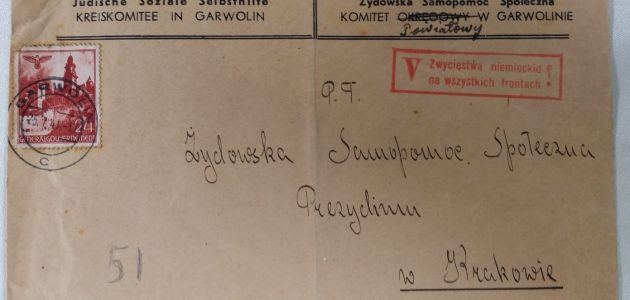 Jüdische Soziale Selbsthilfe
KREISKOMITEE IN GARWOLIN
Żydowska Samopomoc Społeczna
KOMITET OKRĘGOWY W GARWOLINIE
Powiatowy
V Zwycięstwa niemieckie
na wszystkich frontach!
GARWOLIN
24
GENERALGOUVERNEMENT
c
P.T.
Żydowska Samopomoc Społeczna
Prezydium
w Krakowie
51